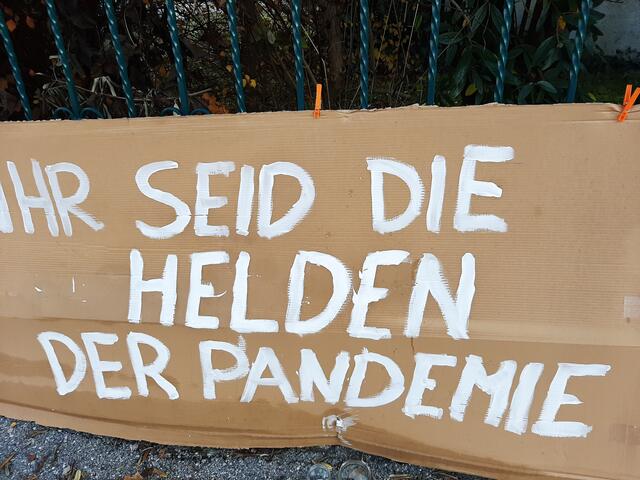 IHR SEID DIE
HELDEN
DER PANDEMIE